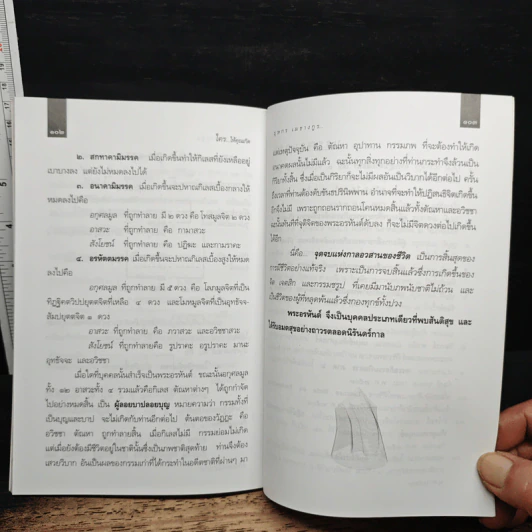 ๑๐๒
ใคร..ให้คุณเกิด
๒. สกทาคามิมรรค เมื่อเกิดขึ้นทำให้กิเลสที่ยังเหลืออยู่
เบาบางลง แต่ยังไม่หมดลงไปได้
๓. อนาคามิมรรค เมื่อเกิดขึ้นจะปหาณกิเลสเบื้องกลางให้
หมดลงไปคือ
อกุศลมูล ที่ถูกทำลาย มี ๒ ดวง คือ โทสมูลจิต ๒ ดวง
อาสวะ ที่ถูกทำลาย คือ กามาสวะ
สังโยชน์ ที่ถูกทำลาย คือ ปฏิฆะ และกามราคะ
๔. อรหัตตมรรค เมื่อเกิดขึ้นจะปหาณกิเลสเบื้องสูงให้หมด
ลงไปคือ
อกุศลมูล ที่ถูกทำลาย มี ๕ ดวง คือ โลภมูลจิตที่เป็น
ทิฏฐิคตวิปปยุตตจิตที่เหลือ ๔ ดวง และโมหมูลจิตที่เป็นอุทธัจจ-
สัมปยุตตจิต ๑ ดวง
อาสวะ ที่ถูกทำลาย คือ ภวาสวะ และอวิชชาสวะ
สังโยชน์ ที่ถูกทำลายคือ รูปราคะ อรูปราคะ มานะ
อุทธัจจะ และอวิชชา
เมื่อใดที่บุคคลนั้นสำเร็จเป็นพระอรหันต์ ขณะนั้นอกุศลมูล
ทั้ง ๑๒ อาสวะทั้ง ๔ รวมแล้วคือกิเลส ตัณหาต่างๆ ได้ถูกกำจัด
ไปอย่างหมดสิ้น เป็น ผู้ลอยบาปลอยบุญ หมายความว่า กรรมทั้งที่
เป็นบุญและบาป จะไม่เกิดกับท่านอีกต่อไป ต้นตอของวัฏฏะ คือ
อวิชชา ตัณหา ถูกทำลายสิ้น เมื่อกิเลสไม่มี กรรมย่อมไม่เกิด
แต่เมื่อยังต้องมีชีวิตอยู่ในชาตินั้นซึ่งเป็นภพชาติสุดท้าย ท่านจึงต้อง
เสวยวิบาก อันเป็นผลของกรรมเก่าที่ได้กระทำในอดีตชาติที่ผ่านๆ มา
๑๐๓
แต่เหตุปัจจุบัน คือ ตัณหา อุปาทาน กรรมภพ ที่จะต้องทำให้เกิด
อนาคตผลนั้นไม่มีแล้ว ฉะนั้นทุกสิ่งทุกอย่างที่ท่านกระทำจึงล้วนเป็น
กิริยาทั้งสิ้น ซึ่งเมื่อเป็นกิริยาก็จะไม่มีผลอันเป็นวิบากได้อีกต่อไป ครั้น
ถึงเวลาที่ท่านต้องดับขันธปรินิพพาน อำนาจที่จะทำให้ปฏิสนธิจิตเกิดขึ้น
อีกจึงไม่มี เพราะถูกถอนรากถอนโคนหมดสิ้นแล้วทั้งตัณหาและอวิชชา
ฉะนั้นทันทีที่จุติจิตของพระอรหันต์ดับลง ก็จะไม่มีจิตดวงต่อไปเกิดขึ้น
ได้อีก
นี่คือ.. จุดจบแห่งกาลอวสานของชีวิต เป็นการสิ้นสุดของ
การมีชีวิตอย่างแท้จริง เพราะเป็นการจบสิ้นแล้วซึ่งการเกิดขึ้นของ
จิต เจตสิก และกรรมชรูป ที่เคยมีมานับภพนับชาติไม่ถ้วน และ
เป็นชีวิตของผู้ที่หลุดพ้นแล้วซึ่งกองทุกข์ทั้งปวง
พระอรหันต์ จึงเป็นบุคคลประเภทเดียวที่พบสันติสุข และ
ได้รับอมตสุขอย่างถาวรตลอดนิรันดร์กาล